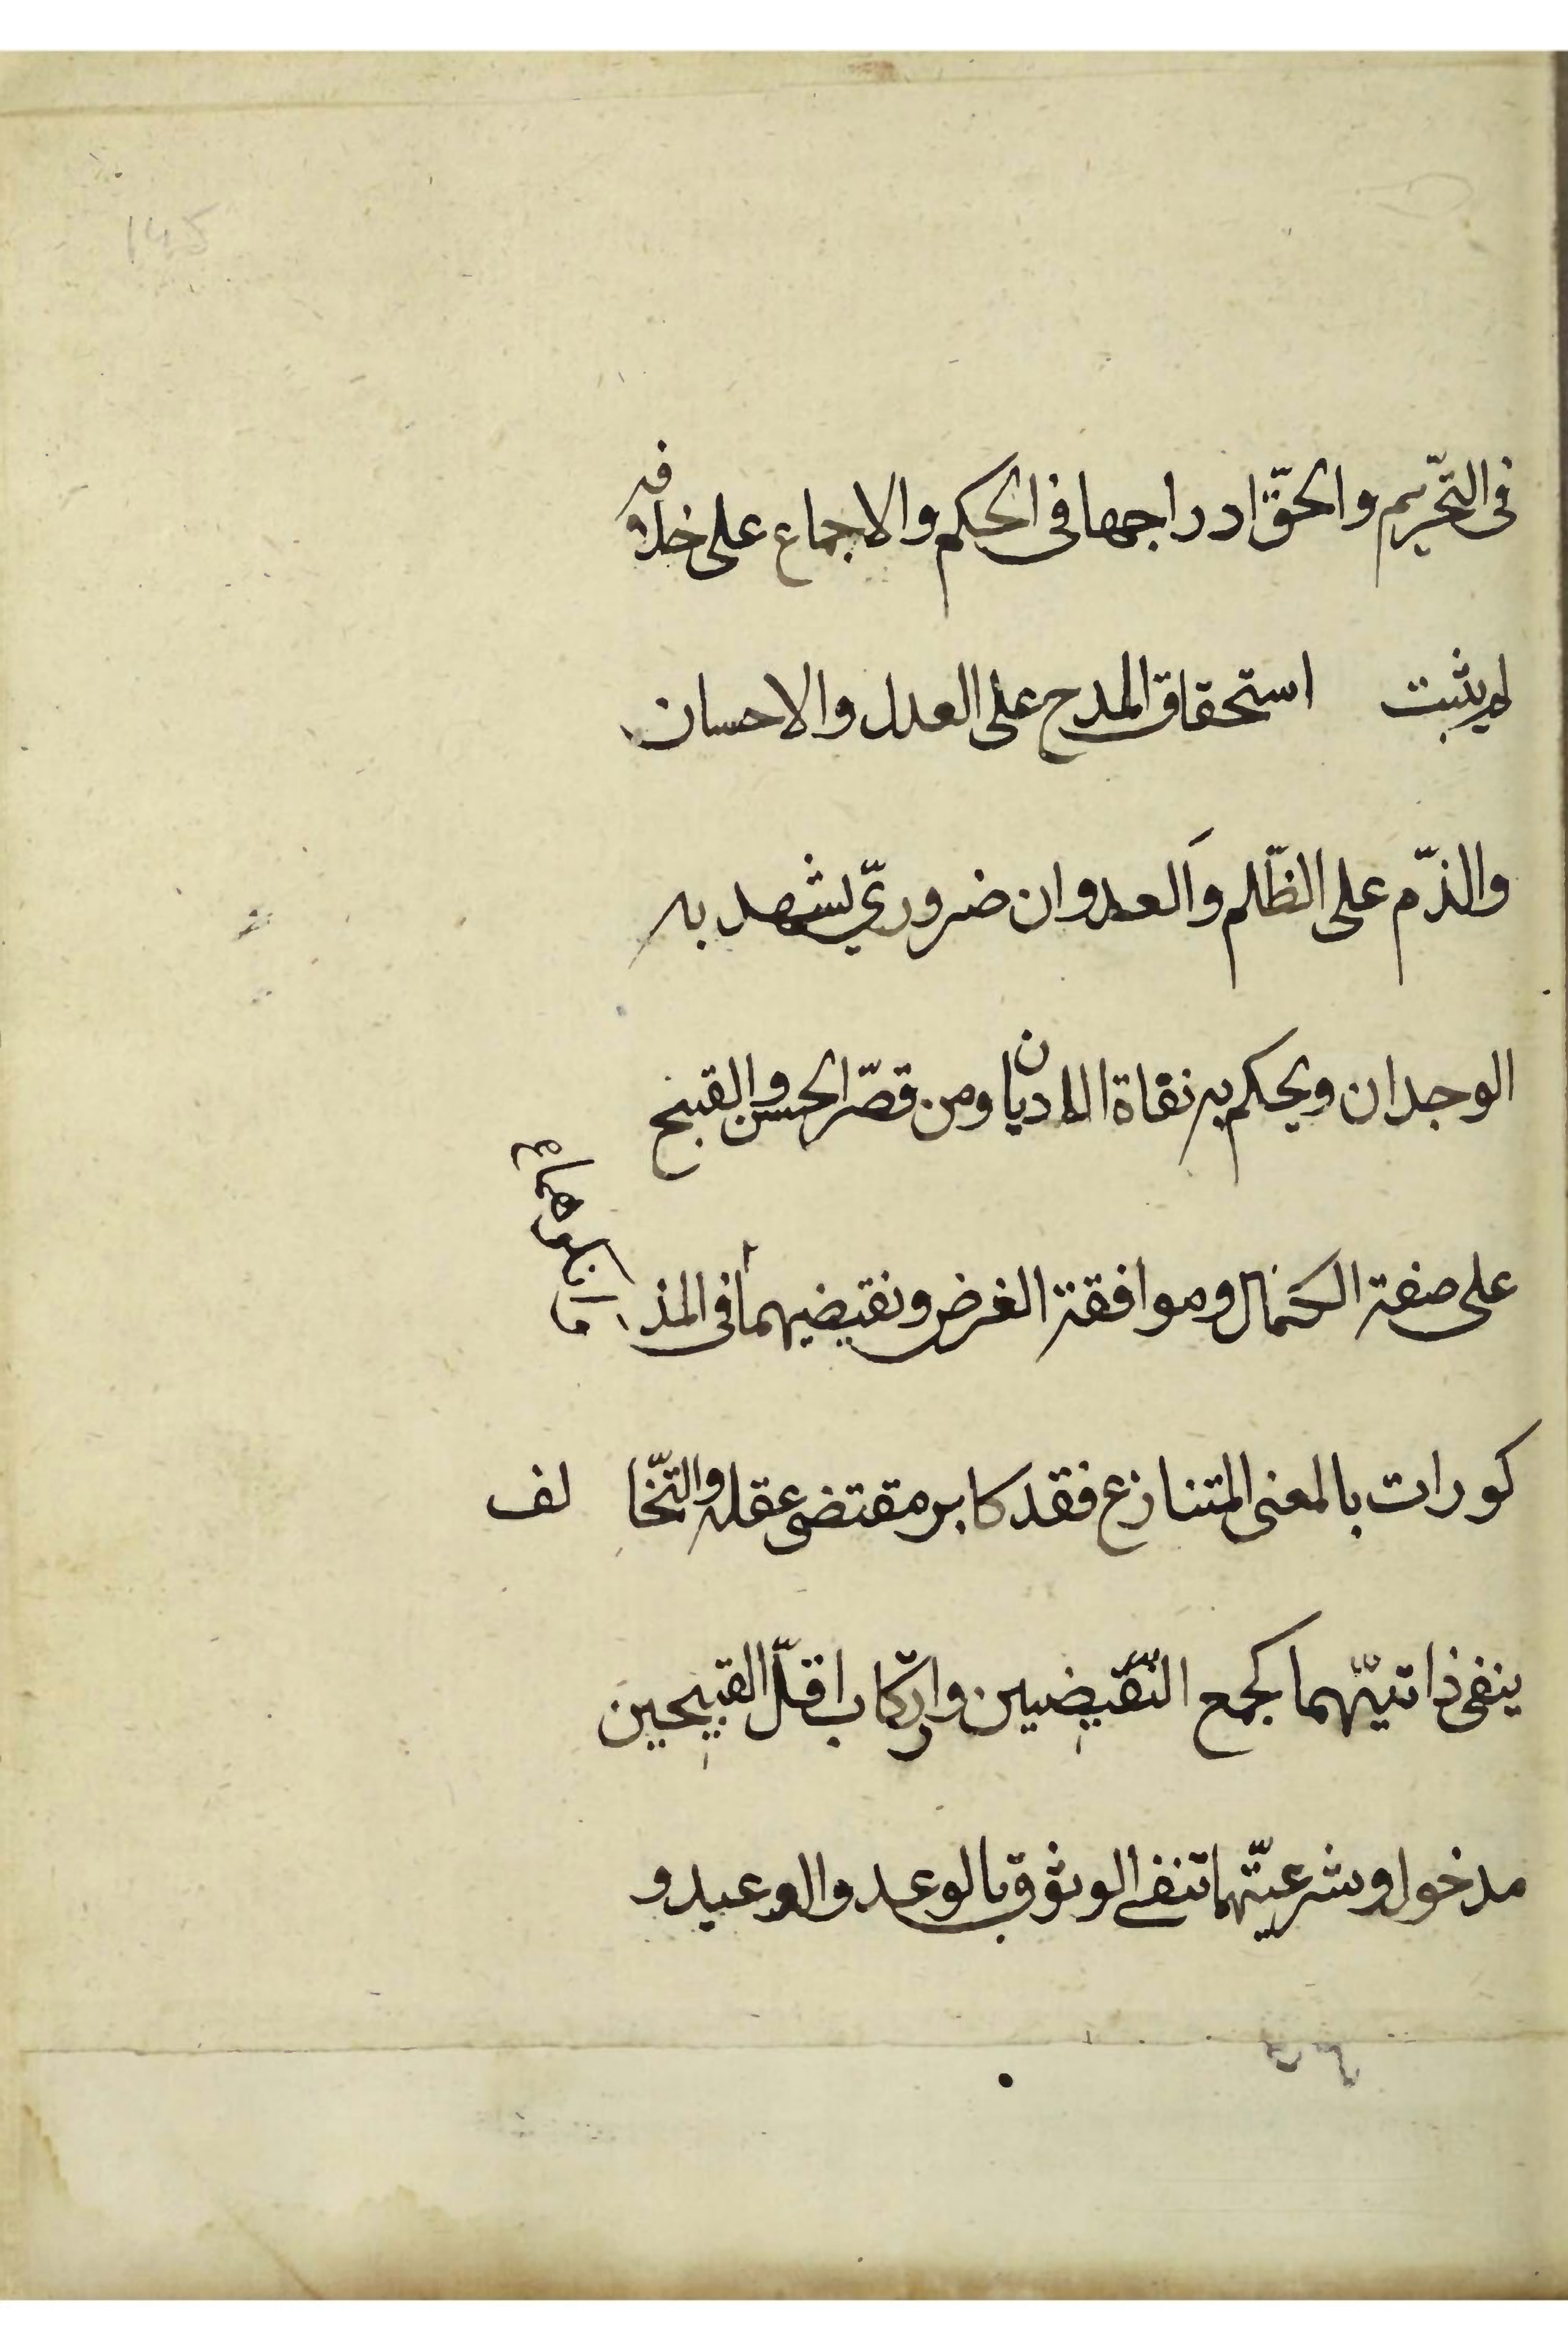 في التّحريم والحقّ ادراجها في الحكم والاجماع على خلافه
لم يثبت استحقاق المدح على العدل والاحسان
والذّم على الظّلم وَالعدوان ضروريّ يشهد به
الوجدان ويحكم به نفاة الاديان ومن قصّر الحسن والقبح
على صفة الكمال وموافقة الغرض ونقيضيهما في المذ
كورات بالمعنى المتنازع فقد كابر مقتضى عقله والتّخا لف
ينفي ذاتيّتهما كجمع النّقيضين وارتكاب اقلّ القبيحين
مدخول وشرعيّتهما تنفي الوثوق بالوعد والوعيد و